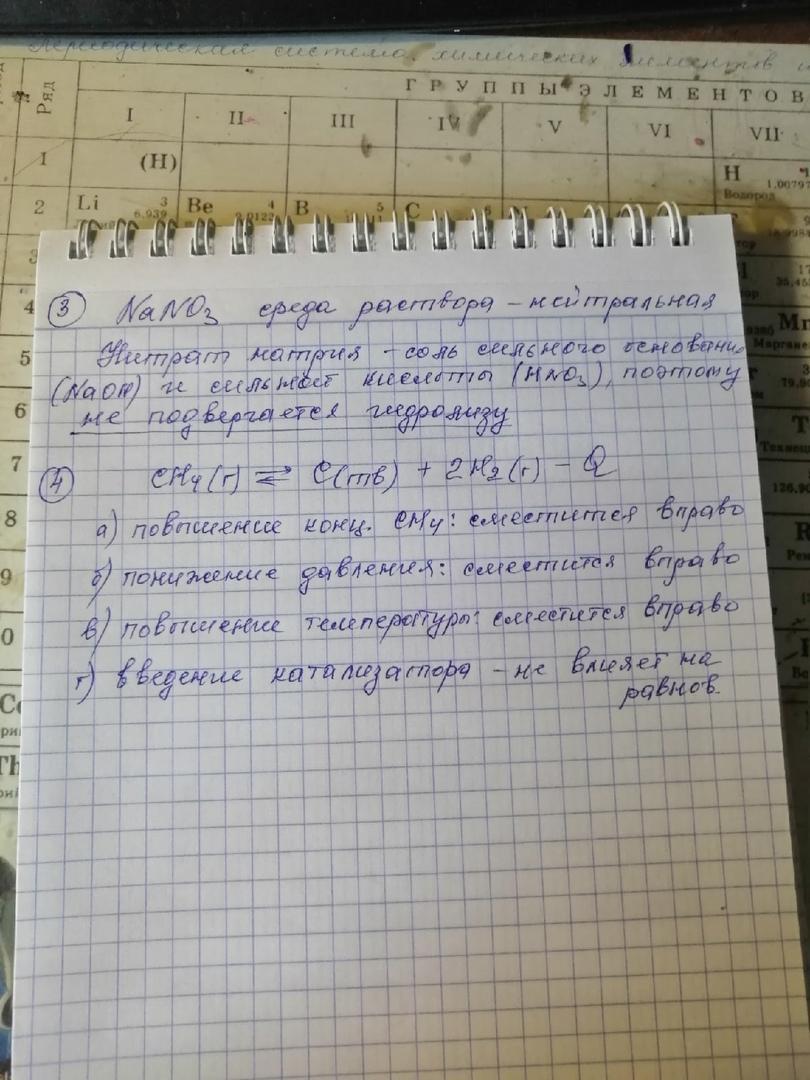 Периодическая система химических элементов
ГРУППЫ ЭЛЕМЕНТОВ
Ряд
I II III IV V VI VII
1 (H) H 1,00797
Водород
2 Li 3 6,939 Be 4 9,0122 B 5 C 6
3
4
5
6
7
8
9
③ NaNO₃ среда раствора – нейтральная
Нитрат натрия – соль сильного основания
(NaOH) и сильной кислоты (HNO₃), поэтому
не подвергается гидролизу
④ CH₄(г) ⇌ C(тв) + 2H₂(г) – Q
а) повышение конц. CH₄: сместится вправо
б) понижение давления: сместится вправо
в) повышение температуры: сместится вправо
г) введение катализатора – не влияет на
равнов.